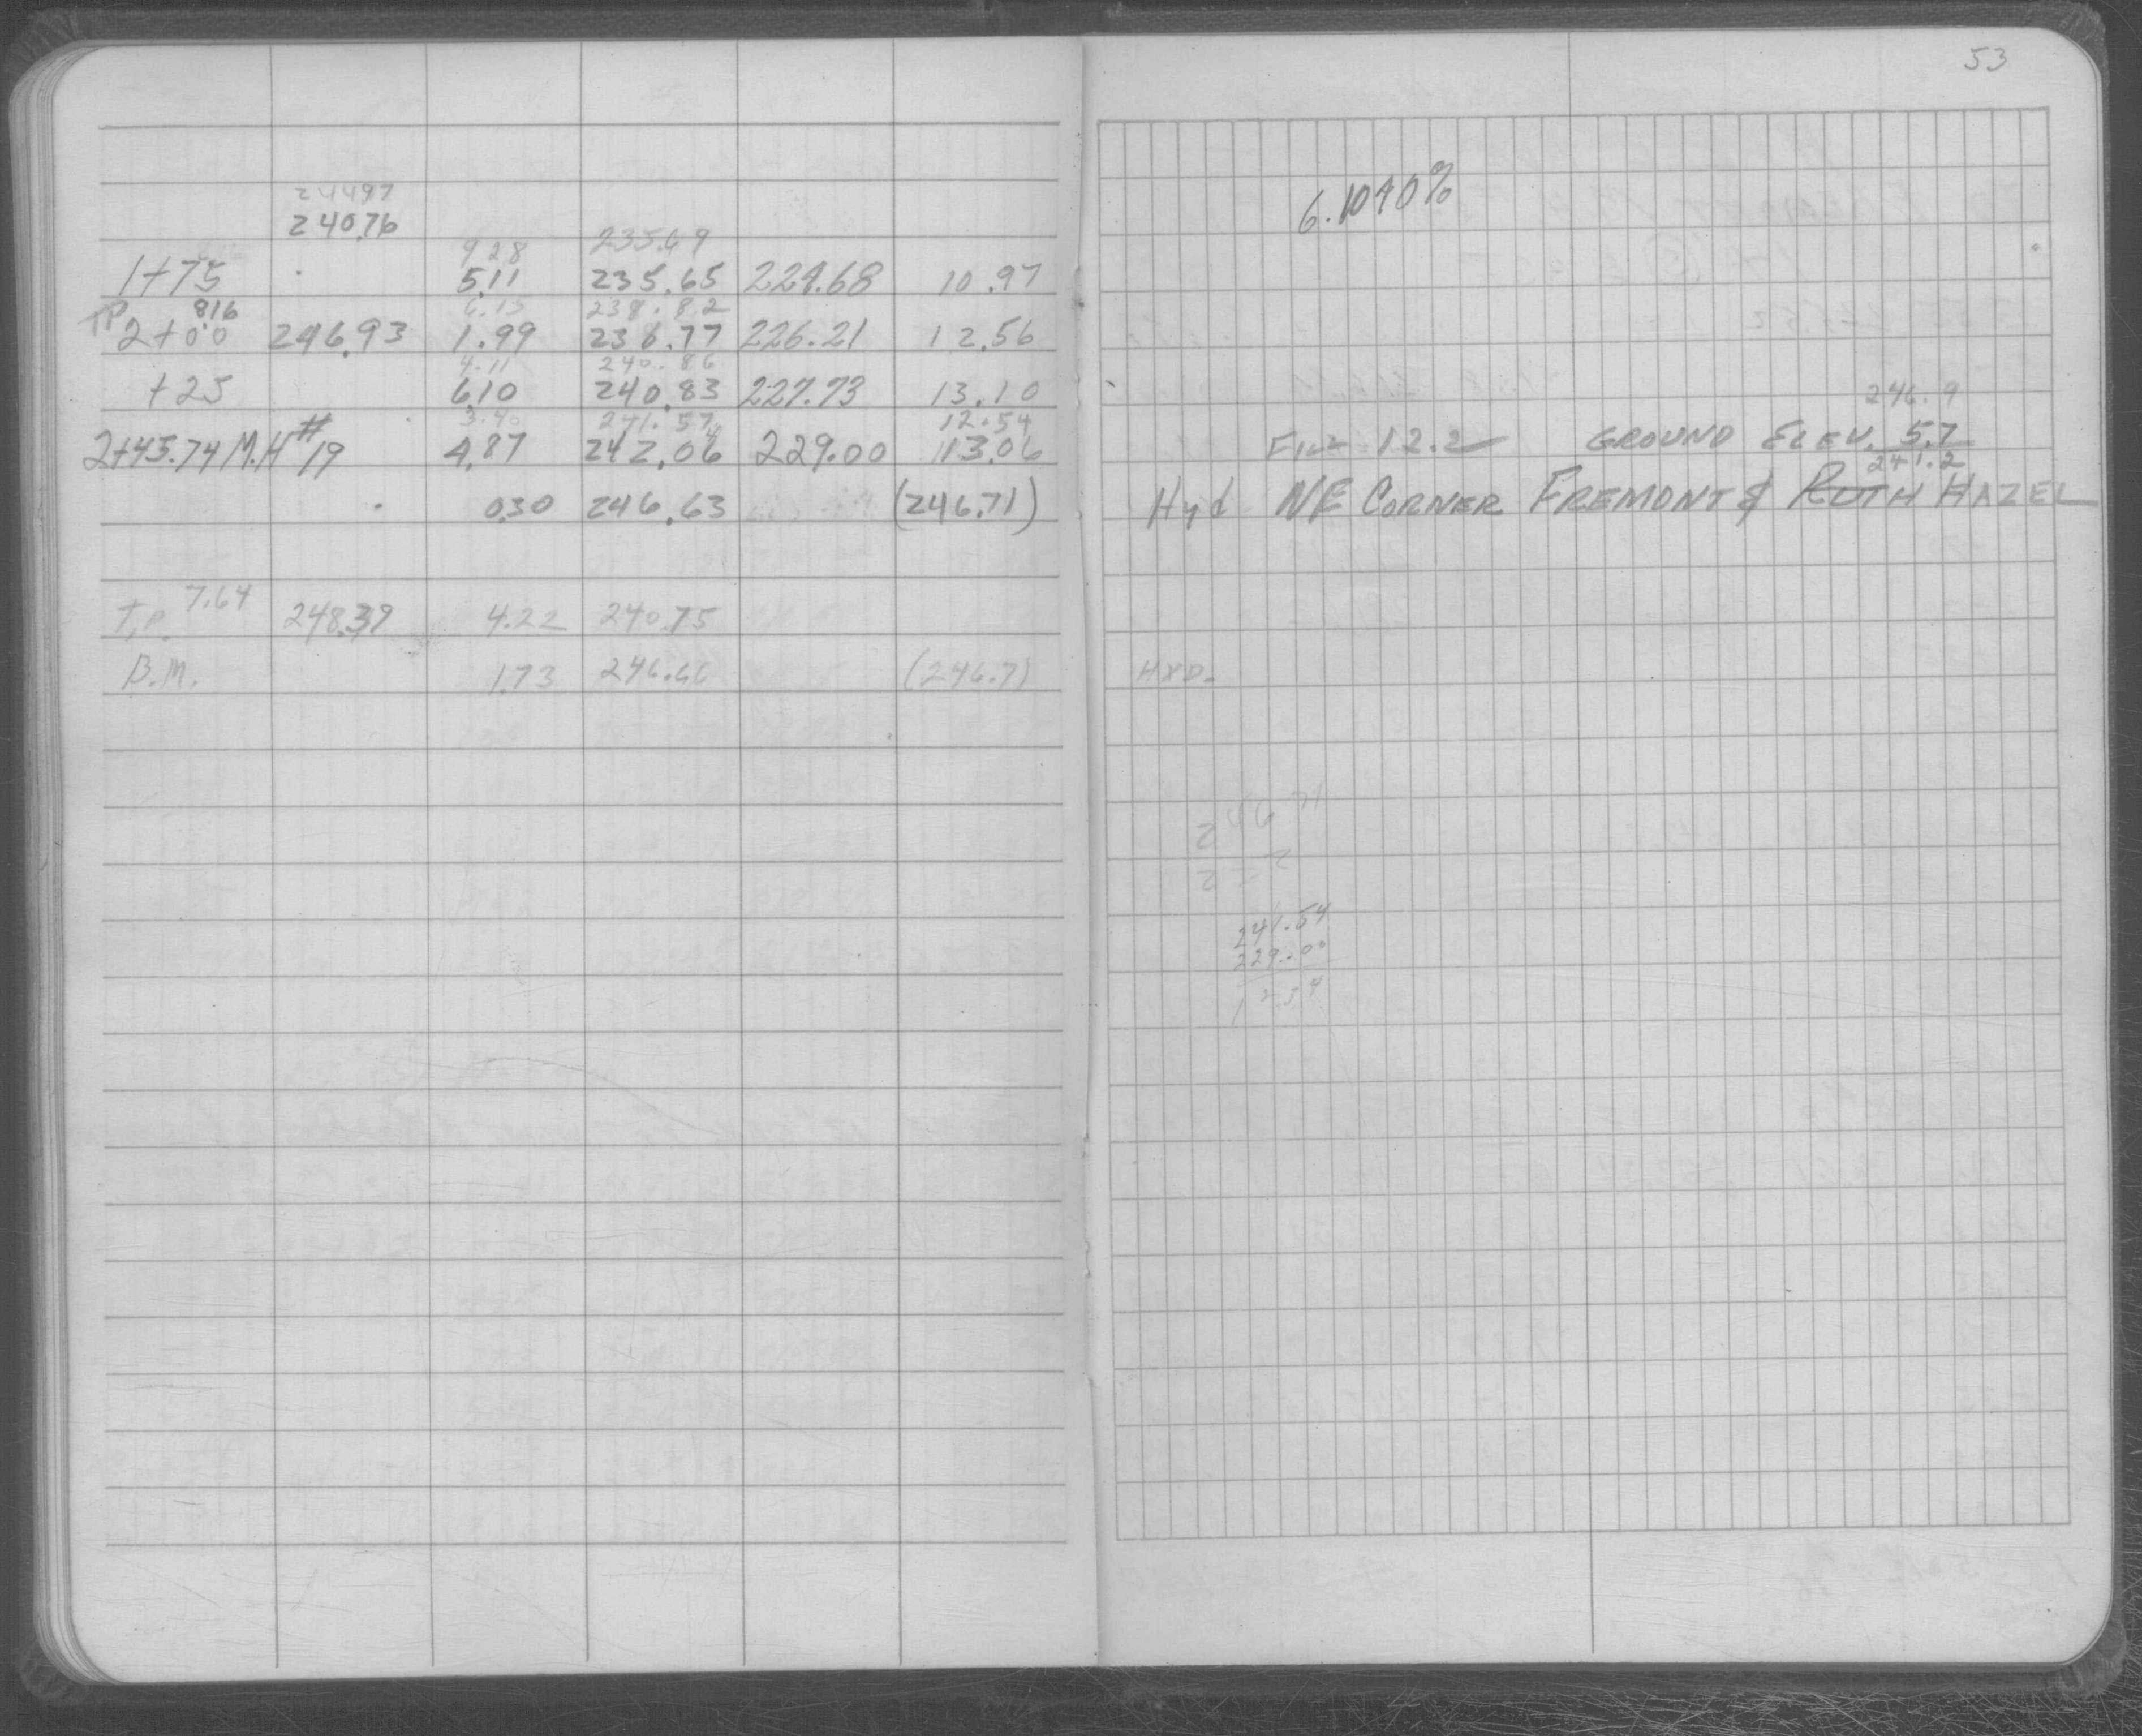 53
24497
240.76
6.1040%
9.28 235.69
1+75 5.11 235.65 224.68 10.97
6.15 238.82
TP 8.16
2+00 246.93 1.99 238.77 226.21 12.56
4.11 240.86
+25 6.10 240.83 227.73 13.10
3.40 241.57 12.54 246.9
2+45.74 M.H #19 4.87 242.06 229.00 13.06 FILL 12.2 GROUND ELEV. 5.7
241.2
0.30 246.63 (246.71) Hyd NE CORNER FREMONT & RUTH HAZEL
T.P. 7.64 248.39 4.22 240.75
B.M. 1.73 246.66 (246.71) HYD.
241.54
229.00
1234